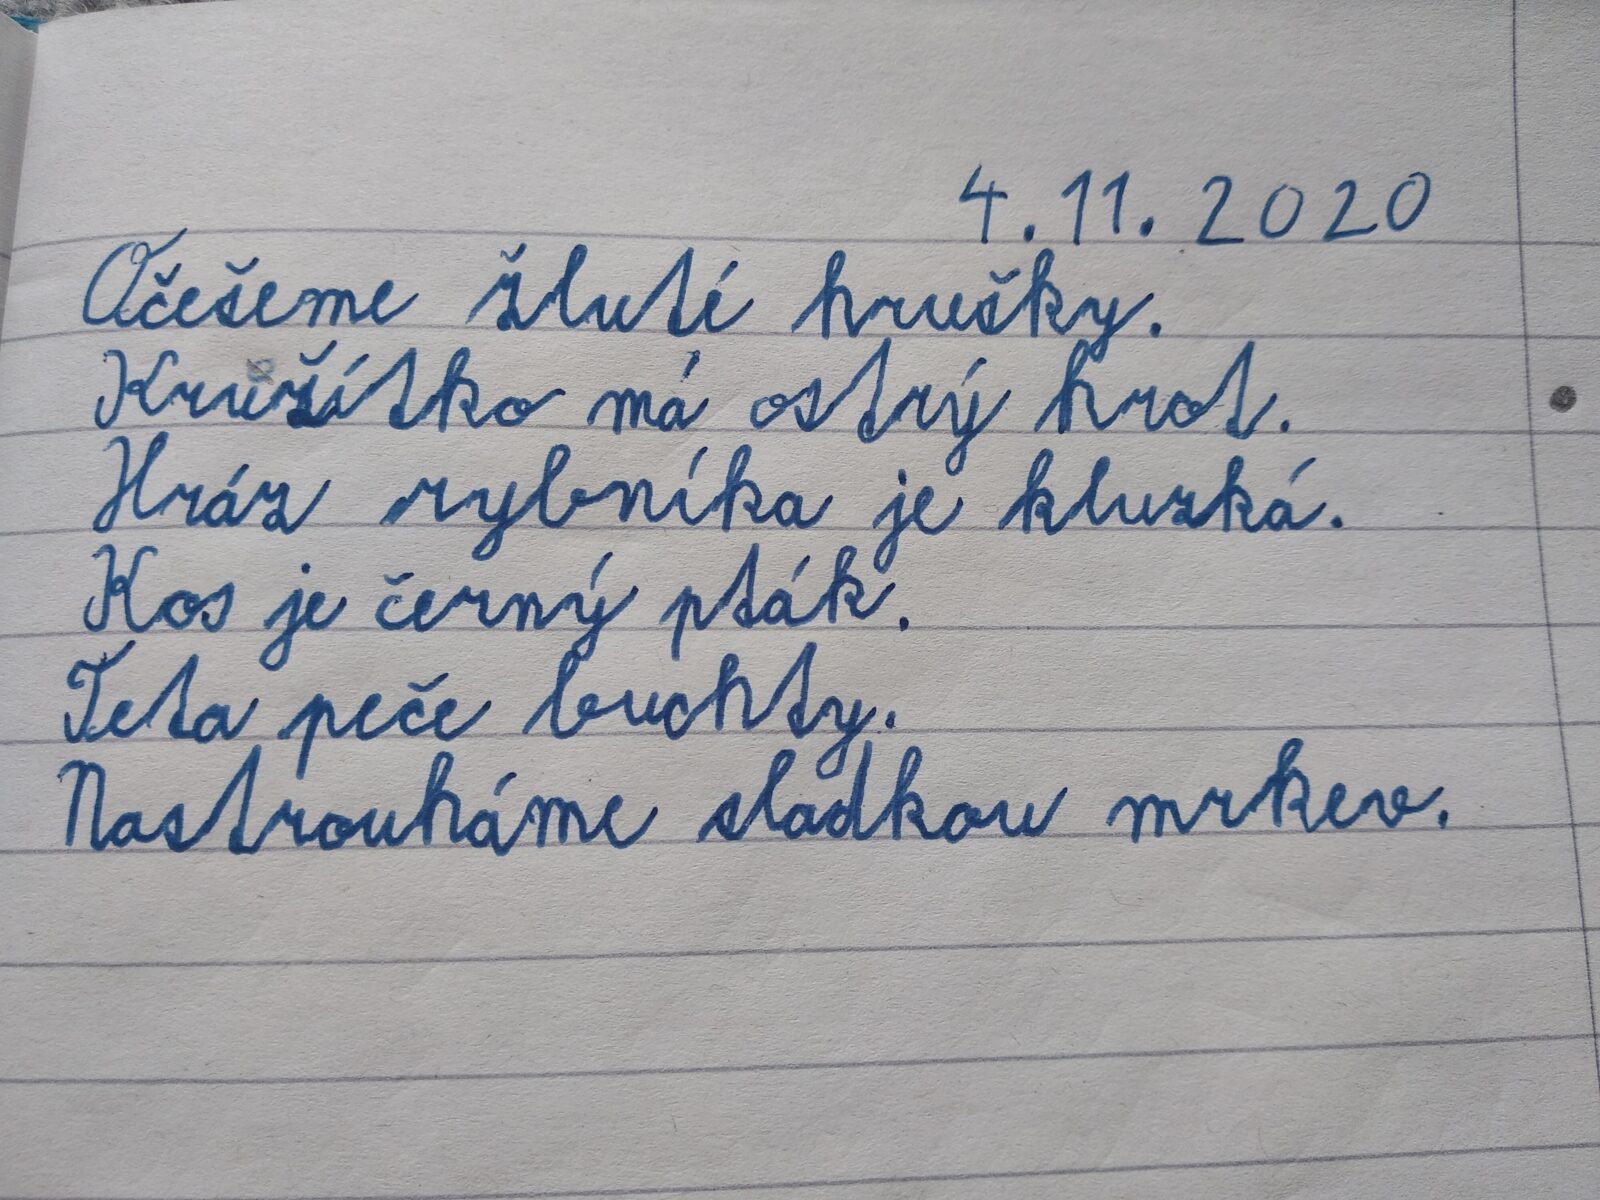 4.11.2020
Očešeme žluté hrušky.
Kružítko má ostrý hrot.
Hráz rybníka je kluzká.
Kos je černý pták.
Teta peče buchty.
Nastrouháme sladkou mrkev.